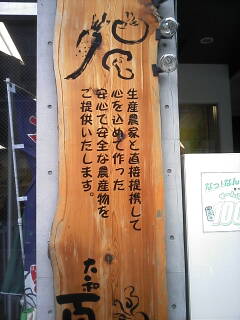 生産農家と直接提携して
心を込めて作った
安心で安全な農産物を
ご提供いたします。
大和
百
なっ!なん
100